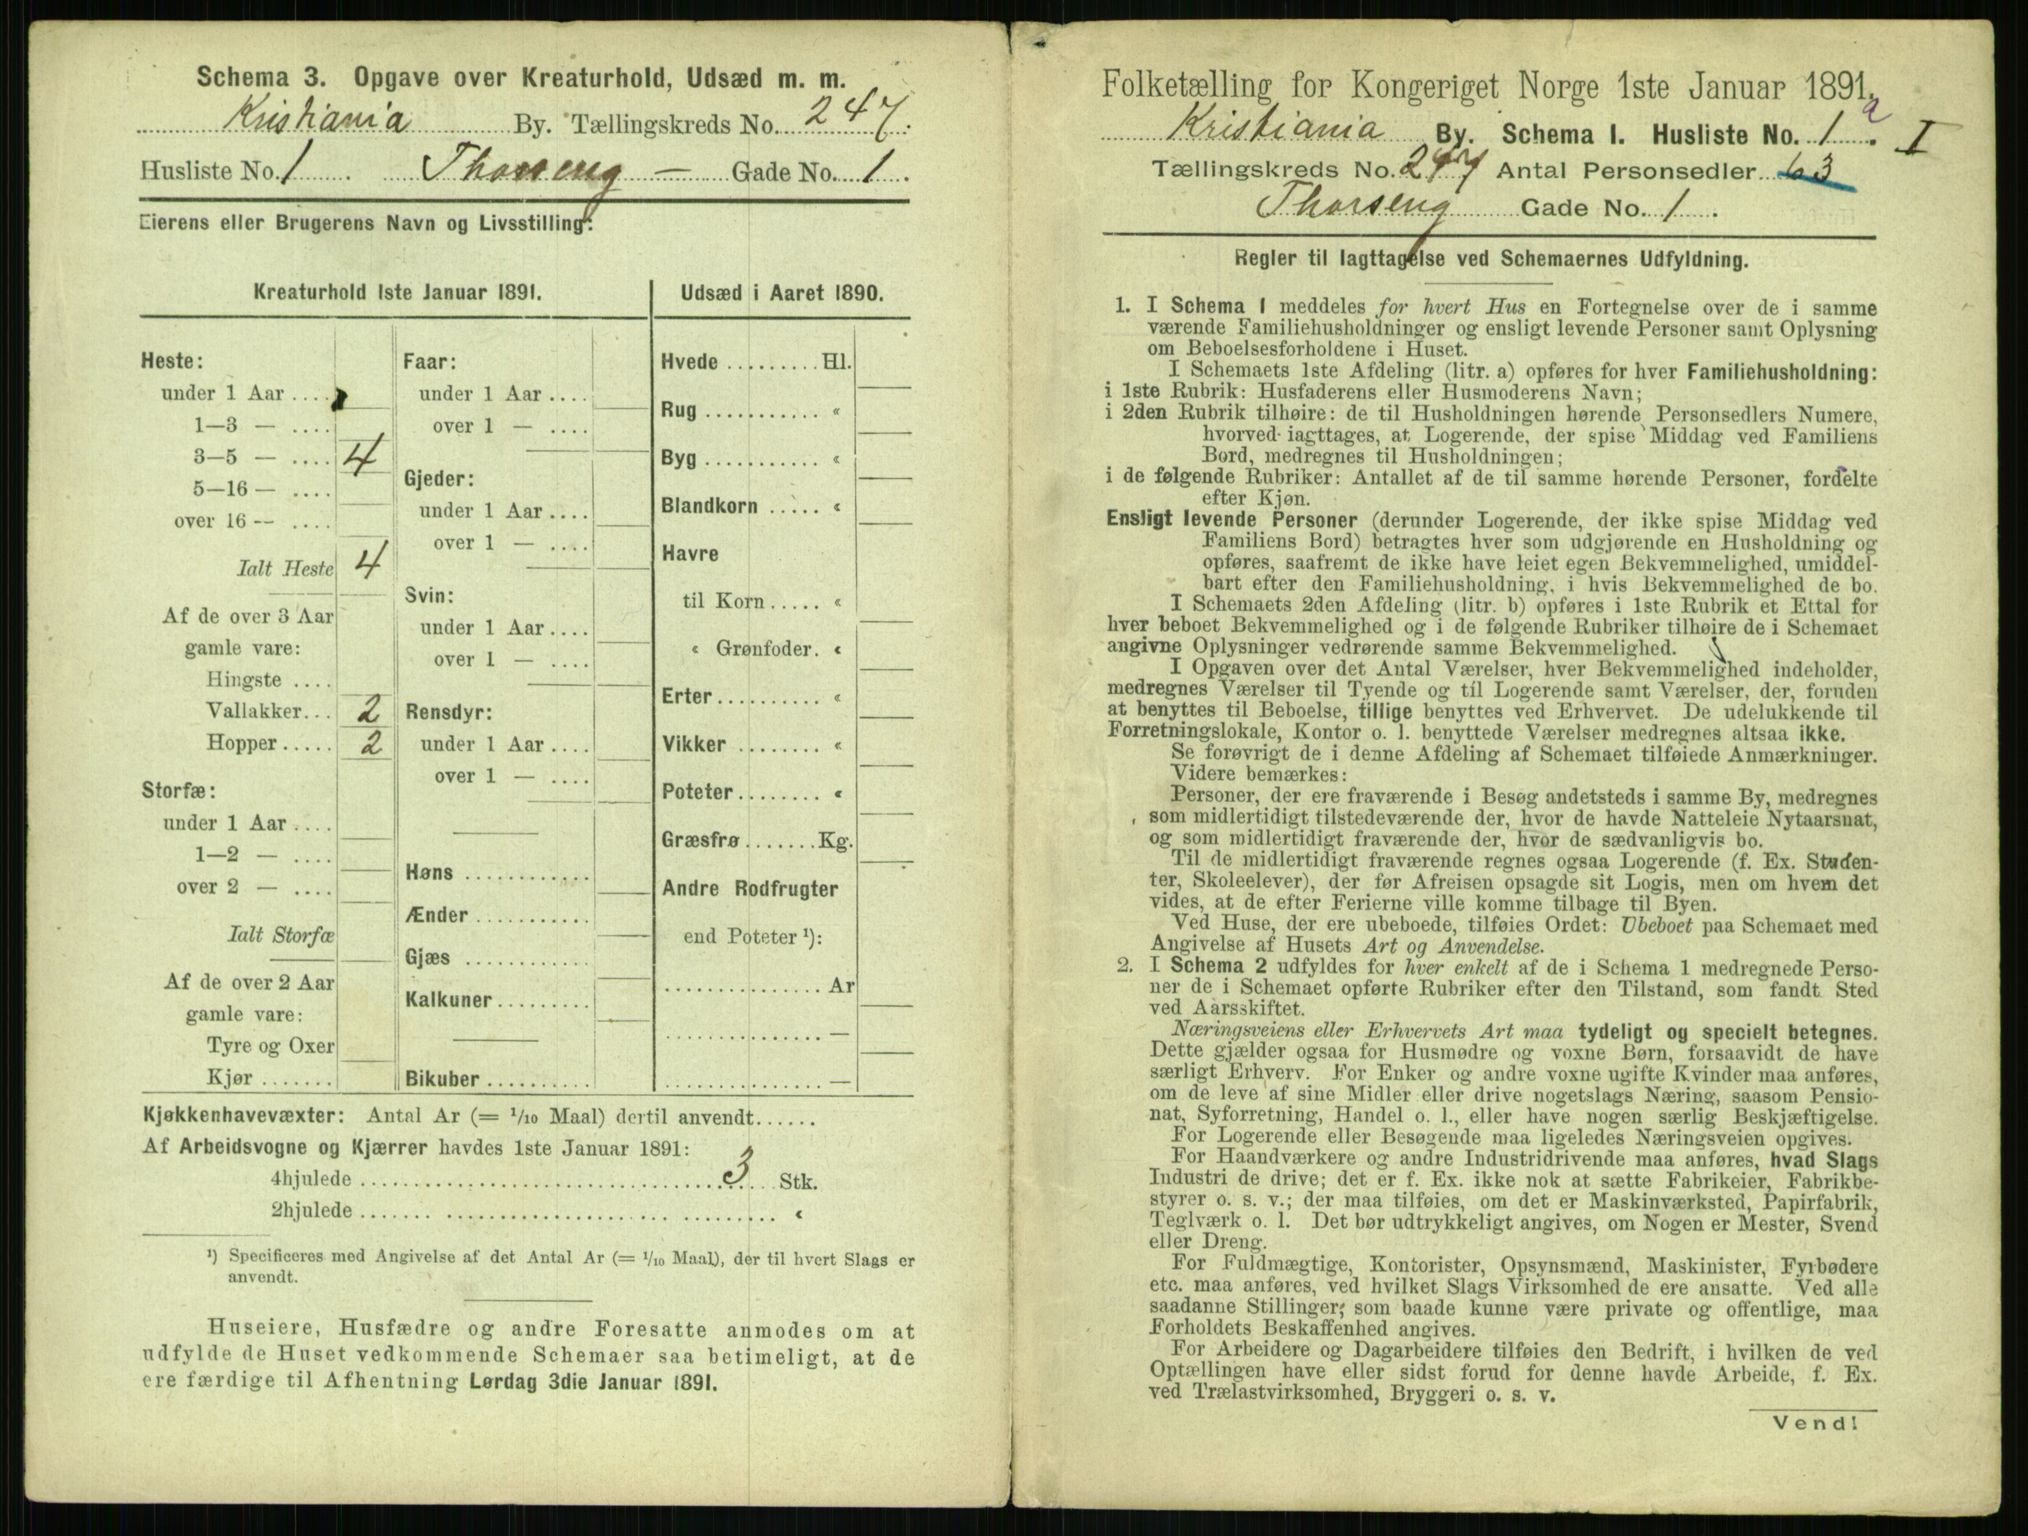 Schema 3. Opgave over Kreaturhold, Udsæd m. m.
Kristiania By. Tællingskreds No. 247.
Husliste No. 1 . Thorseng — Gade No. 1 .
Eierens eller Brugerens Navn og Livsstilling:
Kreaturhold 1ste Januar 1891.
Heste:
under 1 Aar ....
1—3 — ....
3—5 — .... 4
5—16 — ....
over 16 — ....
Ialt Heste 4
Af de over 3 Aar
gamle vare:
Hingste ....
Vallakker... 2
Hopper ..... 2
Storfæ:
under 1 Aar ....
1—2 — ....
over 2 — ....
Ialt Storfæ
Af de over 2 Aar
gamle vare:
Tyre og Oxer
Kjør .......
Faar:
under 1 Aar ....
over 1 — ....
Gjeder:
under 1 Aar ....
over 1 — ....
Svin:
under 1 Aar ....
over 1 — ....
Rensdyr:
under 1 Aar ....
over 1 — ....
Høns ............
Ænder ...........
Gjæs ............
Kalkuner .........
Bikuber ..........
Udsæd i Aaret 1890.
Hvede ......... Hl.
Rug ........... «
Byg ........... «
Blandkorn ..... «
Havre
til Korn ..... «
« Grønfoder. «
Erter .......... «
Vikker ........ «
Poteter ........ «
Græsfrø ....... Kg.
Andre Rodfrugter
end Poteter ¹):
............... Ar
............... —
............... —
Kjøkkenhavevæxter: Antal Ar (= 1/10 Maal) dertil anvendt......
Af Arbeidsvogne og Kjærrer havdes 1ste Januar 1891:
4hjulede .................................. 3 ... Stk.
2hjulede .................................. «
¹) Specificeres med Angivelse af det Antal Ar (= 1/10 Maal), der til hvert Slags er
anvendt.
Huseiere, Husfædre og andre Foresatte anmodes om at
udfylde de Huset vedkommende Schemaer saa betimeligt, at de
ere færdige til Afhentning Lørdag 3die Januar 1891.
Folketælling for Kongeriget Norge 1ste Januar 1891.
Kristiania By. Schema I. Husliste No. 1 a. I
Tællingskreds No. 247 Antal Personsedler 63
Thorseng Gade No. 1 .
Regler til Iagttagelse ved Schemaernes Udfyldning.
1. I Schema 1 meddeles for hvert Hus en Fortegnelse over de i samme
værende Familiehusholdninger og ensligt levende Personer samt Oplysning
om Beboelsesforholdene i Huset.
I Schemaets 1ste Afdeling (litr. a) opføres for hver Familiehusholdning:
i 1ste Rubrik: Husfaderens eller Husmoderens Navn;
i 2den Rubrik tilhøire: de til Husholdningen hørende Personsedlers Numere,
hvorved iagttages, at Logerende, der spise Middag ved Familiens
Bord, medregnes til Husholdningen;
i de følgende Rubriker: Antallet af de til samme hørende Personer, fordelte
efter Kjøn.
Ensligt levende Personer (derunder Logerende, der ikke spise Middag ved
Familiens Bord) betragtes hver som udgjørende en Husholdning og
opføres, saafremt de ikke have leiet egen Bekvemmelighed, umiddel-
bart efter den Familiehusholdning, i hvis Bekvemmelighed de bo.
I Schemaets 2den Afdeling (litr. b) opføres i 1ste Rubrik et Ettal for
hver beboet Bekvemmelighed og i de følgende Rubriker tilhøire de i Schemaet
angivne Oplysninger vedrørende samme Bekvemmelighed.
I Opgaven over det Antal Værelser, hver Bekvemmelighed indeholder,
medregnes Værelser til Tyende og til Logerende samt Værelser, der, foruden
at benyttes til Beboelse, tillige benyttes ved Erhvervet. De udelukkende til
Forretningslokale, Kontor o. l. benyttede Værelser medregnes altsaa ikke.
Se forøvrigt de i denne Afdeling af Schemaet tilføiede Anmærkninger.
Videre bemærkes:
Personer, der ere fraværende i Besøg andetsteds i samme By, medregnes
som midlertidigt tilstedeværende der, hvor de havde Natteleie Nytaarsnat,
og som midlertidigt fraværende der, hvor de sædvanligvis bo.
Til de midlertidigt fraværende regnes ogsaa Logerende (f. Ex. Studen-
ter, Skoleelever), der før Afreisen opsagde sit Logis, men om hvem det
vides, at de efter Ferierne ville komme tilbage til Byen.
Ved Huse, der ere ubeboede, tilføies Ordet: Ubeboet paa Schemaet med
Angivelse af Husets Art og Anvendelse.
2. I Schema 2 udfyldes for hver enkelt af de i Schema 1 medregnede Perso-
ner de i Schemaet opførte Rubriker efter den Tilstand, som fandt Sted
ved Aarsskiftet.
Næringsveiens eller Erhvervets Art maa tydeligt og specielt betegnes.
Dette gjælder ogsaa for Husmødre og voxne Børn, forsaavidt de have
særligt Erhverv. For Enker og andre voxne ugifte Kvinder maa anføres,
om de leve af sine Midler eller drive nogetslags Næring, saasom Pensio-
nat, Syforretning, Handel o. l., eller have nogen særlig Beskjæftigelse.
For Logerende eller Besøgende maa ligeledes Næringsveien opgives.
For Haandværkere og andre Industridrivende maa anføres, hvad Slags
Industri de drive; det er f. Ex. ikke nok at sætte Fabrikeier, Fabrikbe-
styrer o. s. v.; der maa tilføies, om det er Maskinværksted, Papirfabrik,
Teglværk o. l. Det bør udtrykkeligt angives, om Nogen er Mester, Svend
eller Dreng.
For Fuldmægtige, Kontorister, Opsynsmænd, Maskinister, Fyrbødere
etc. maa anføres, ved hvilket Slags Virksomhed de ere ansatte. Ved alle
saadanne Stillinger, som baade kunne være private og offentlige, maa
Forholdets Beskaffenhed angives.
For Arbeidere og Dagarbeidere tilføies den Bedrift, i hvilken de ved
Optællingen have eller sidst forud for denne havde Arbeide, f. Ex.
ved Trælastvirksomhed, Bryggeri o. s. v.
Vend!